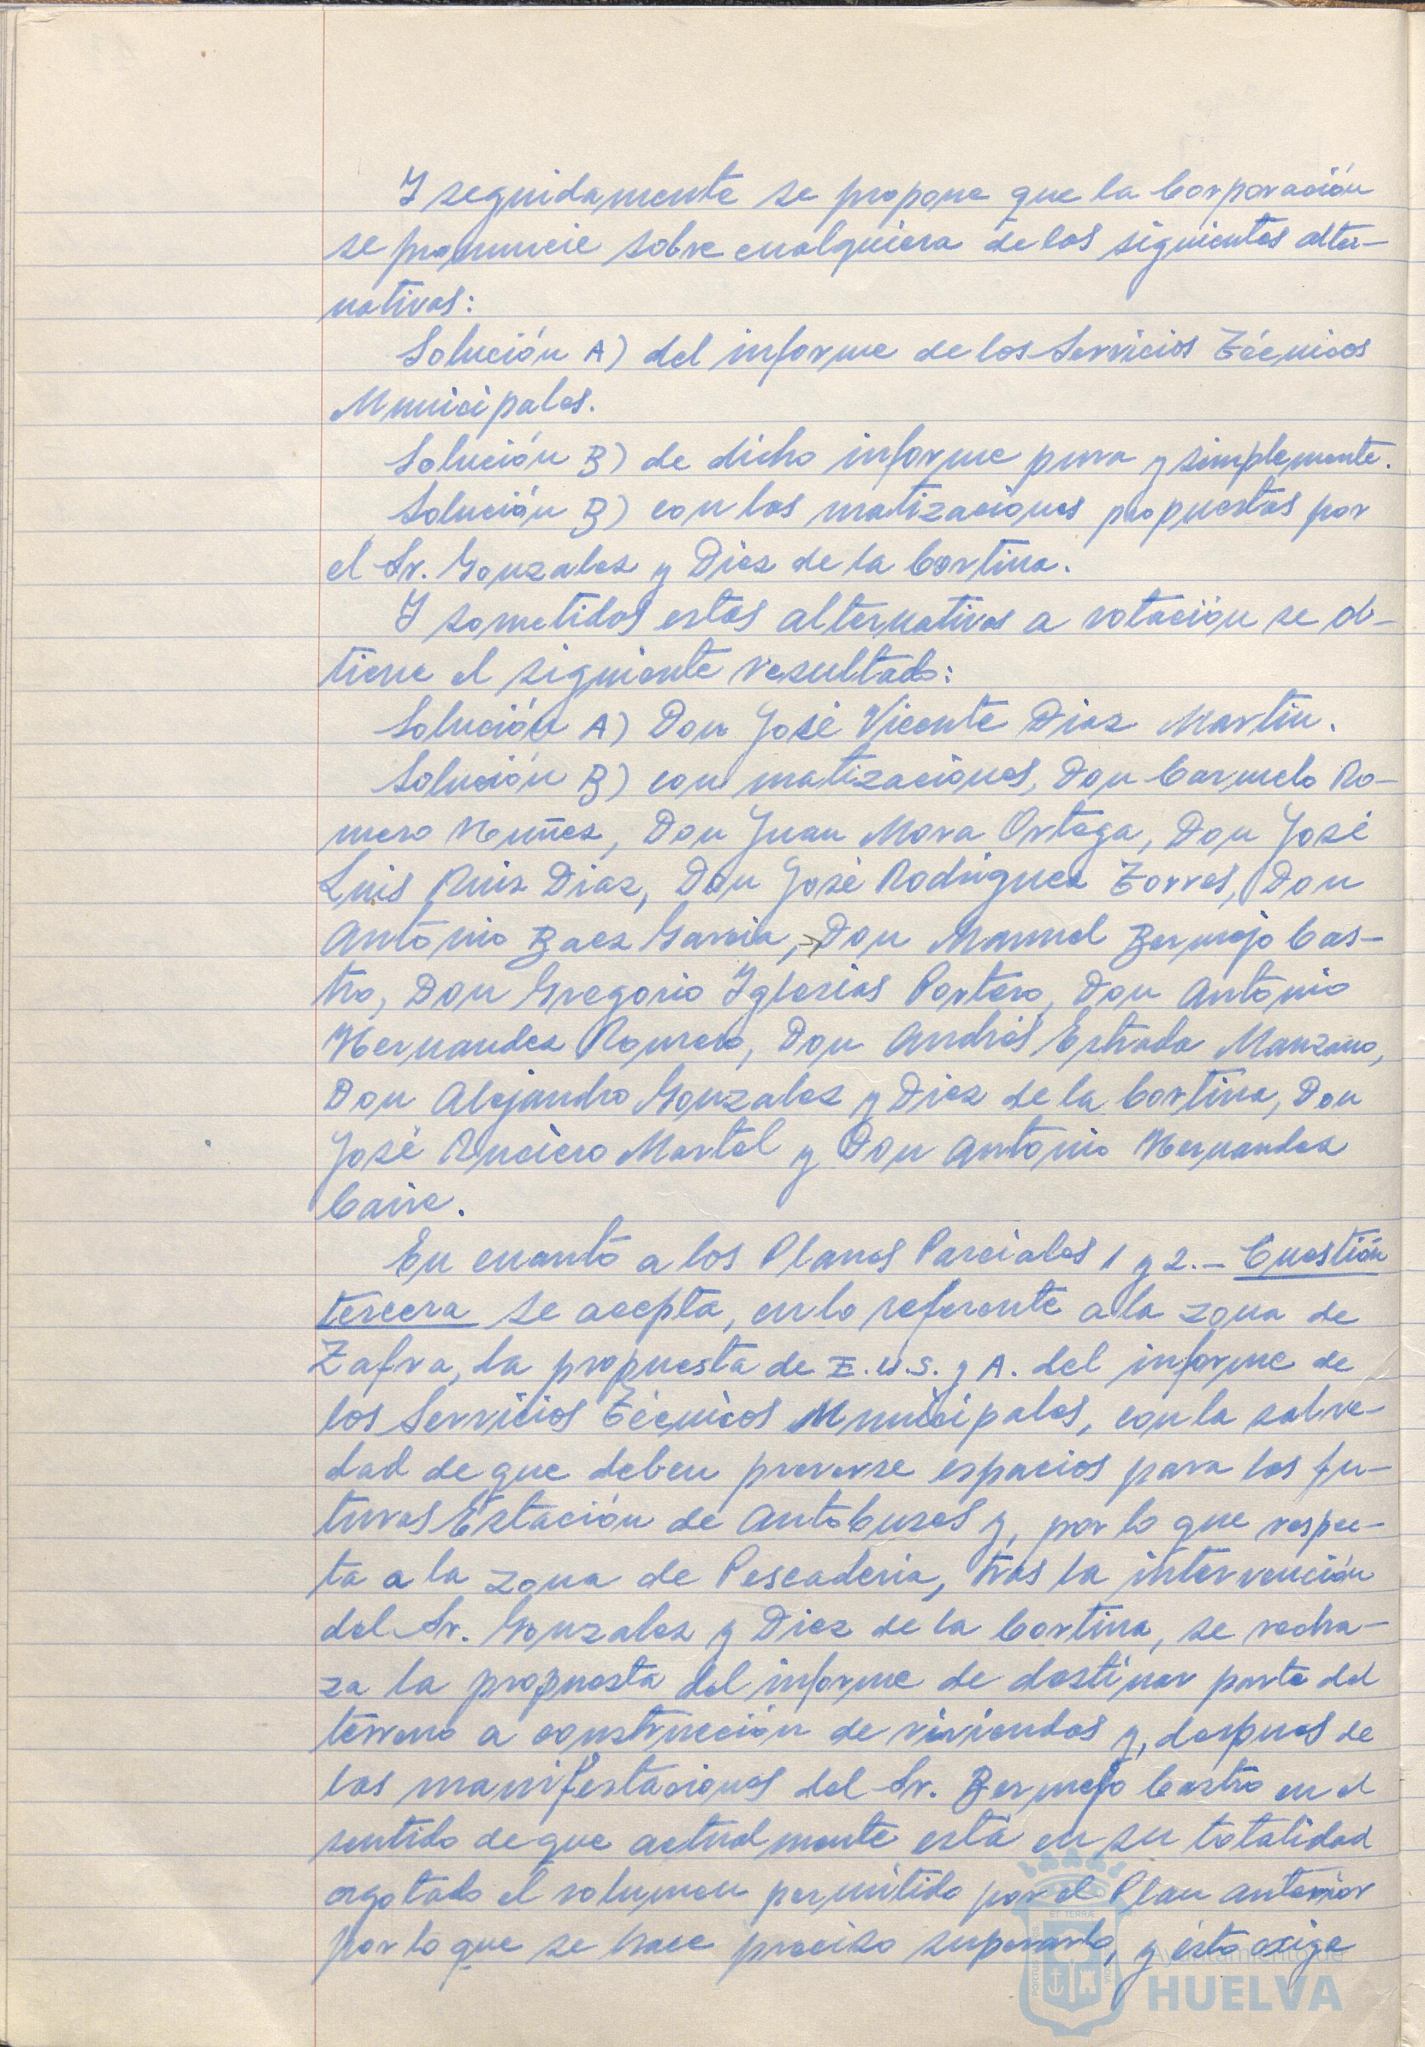 Y seguidamente se propone que la Corporación
se pronuncie sobre cualquiera de las siguientes alter-
nativas:
Solución A) del informe de los Servicios Técnicos
Municipales.
Solución B) de dicho informe pura y simplemente.
Solución B) con las matizaciones propuestas por
el Sr. Gonzalez y Diez de la Cortina.
Y sometidas estas alternativas a votación se ob-
tiene el siguiente resultado:
Solución A) Don José Vicente Diaz Martin.
Solución B) con matizaciones, Don Carmelo Ro-
mero Nuñez, Don Juan Mora Ortega, Don José
Luis Ruiz Diaz, Don José Rodriguez Torres, Don
Antonio Baez Garcia, Don Manuel Bermejo Cas-
tro, Don Gregorio Iglesias Portero, Don Antonio
Hernandez Romero, Don Andrés Estrada Manzano,
Don Alejandro Gonzalez y Diez de la Cortina, Don
José Ruciero Martel y Don Antonio Hernandez
Caire.
En cuanto a los Planes Parciales 1 y 2.- Cuestión
tercera se acepta, en lo referente a la zona de
Zafra, la propuesta de E.U.S. y A. del informe de
los Servicios Técnicos Municipales, con la salve-
dad de que deben preverse espacios para las fu-
turas Estación de Autobuses y, por lo que respec-
ta a la zona de Pescaderia, tras la intervención
del Sr. Gonzalez y Diez de la Cortina, se recha-
za la propuesta del informe de destinar parte del
terreno a construcción de viviendas y, despues de
las manifestaciones del Sr. Bermejo Castro en el
sentido de que actualmente está en su totalidad
agotado el volumen permitido por el Plan anterior
por lo que se hace preciso superarlo, y ésto exige
Ayuntamiento de
HUELVA